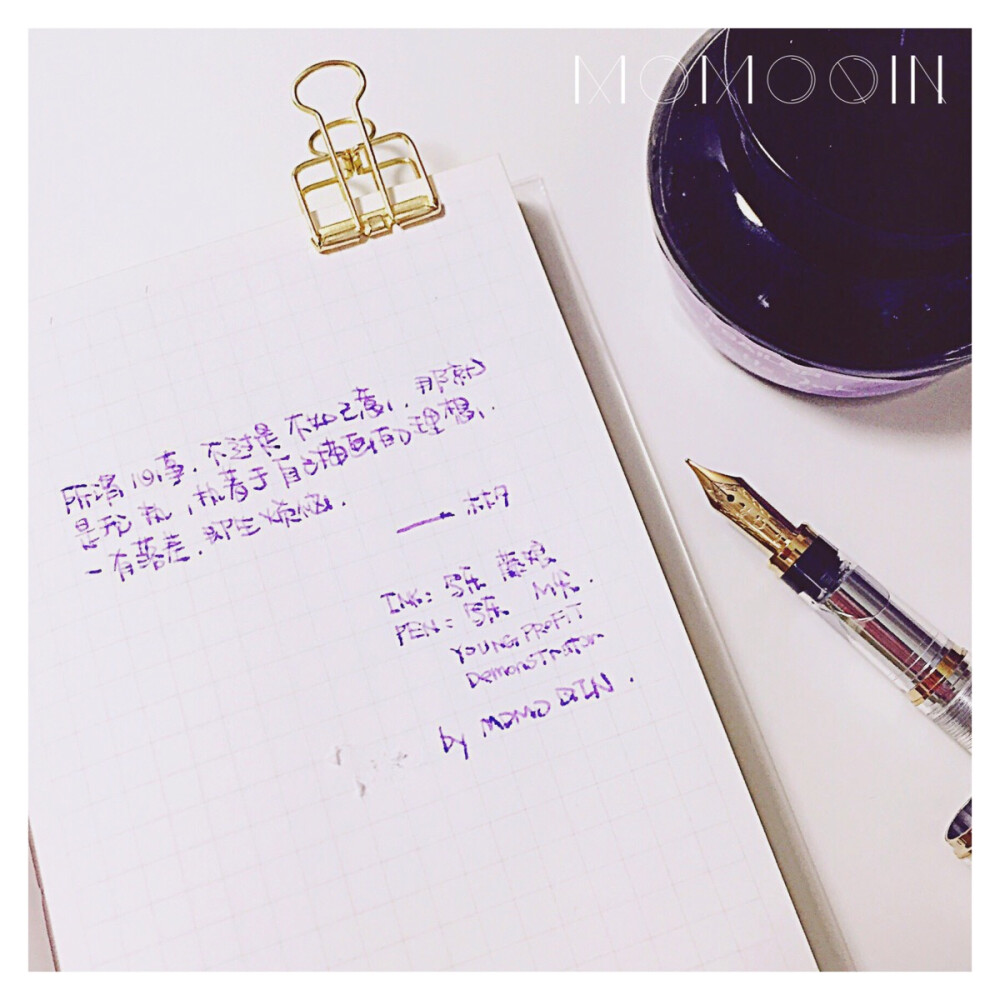 MOMOQIN
所谓心事，不过是不如己意，那就
是我执，执着于自己描画的理想，
一有落差，即生烦恼.
——林夕
INK: 写乐
PEN: 写乐
YOUNG PROFIT
Demonstrator
by MOMO QIN.